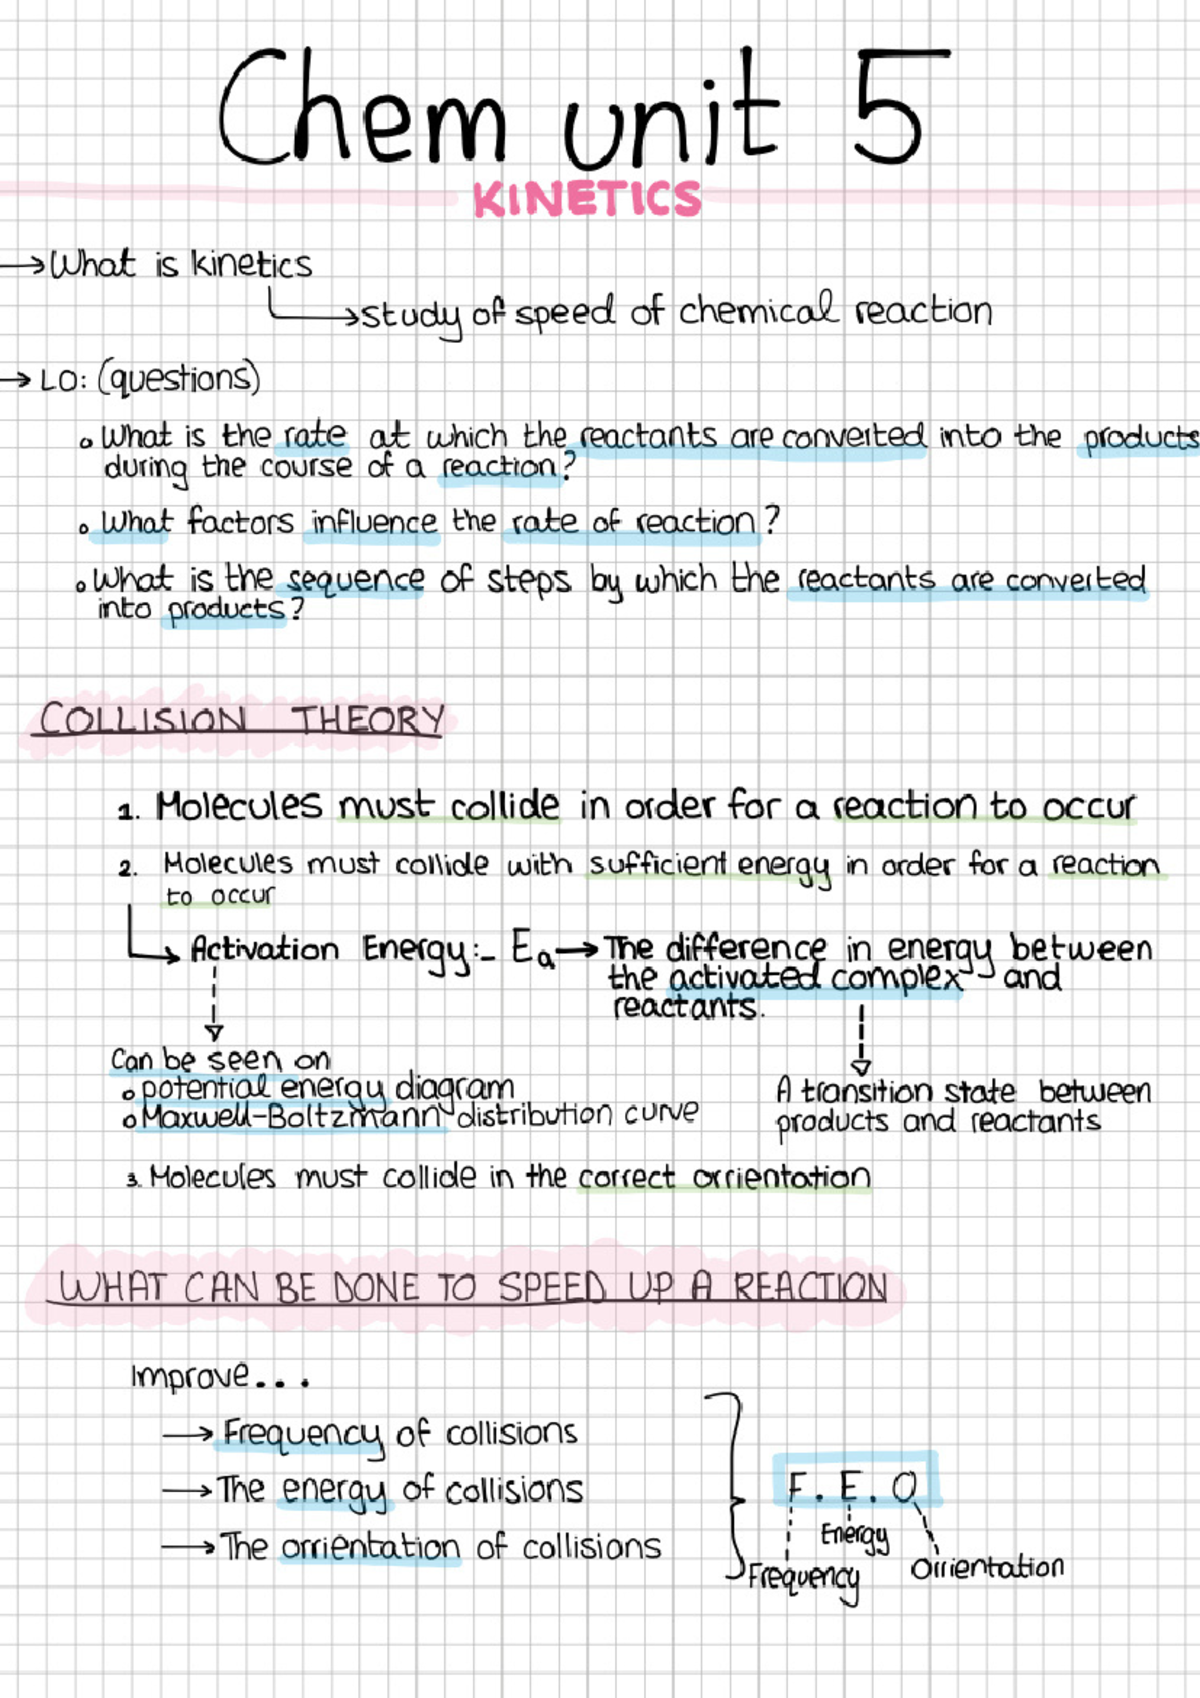 Chem unit 5
KINETICS
→What is kinetics
→study of speed of chemical reaction
→ LO: (questions)
∘ What is the rate at which the reactants are converted into the products
during the course of a reaction?
∘ What factors influence the rate of reaction?
∘ What is the sequence of steps by which the reactants are converted
into products?
COLLISION THEORY
1. Molecules must collide in order for a reaction to occur
2. Molecules must collide with sufficient energy in order for a reaction
to occur
→ Activation Energy:- Ea→The difference in energy between
the activated complex and
reactants.
Can be seen on
∘ potential energy diagram
∘ Maxwell-Boltzmann distribution curve
A transition state between
products and reactants
3. Molecules must collide in the correct orrientation
WHAT CAN BE DONE TO SPEED UP A REACTION
Improve...
→ Frequency of collisions
→The energy of collisions
→The orrientation of collisions
F. E. O
Energy
Frequency
Orrientation